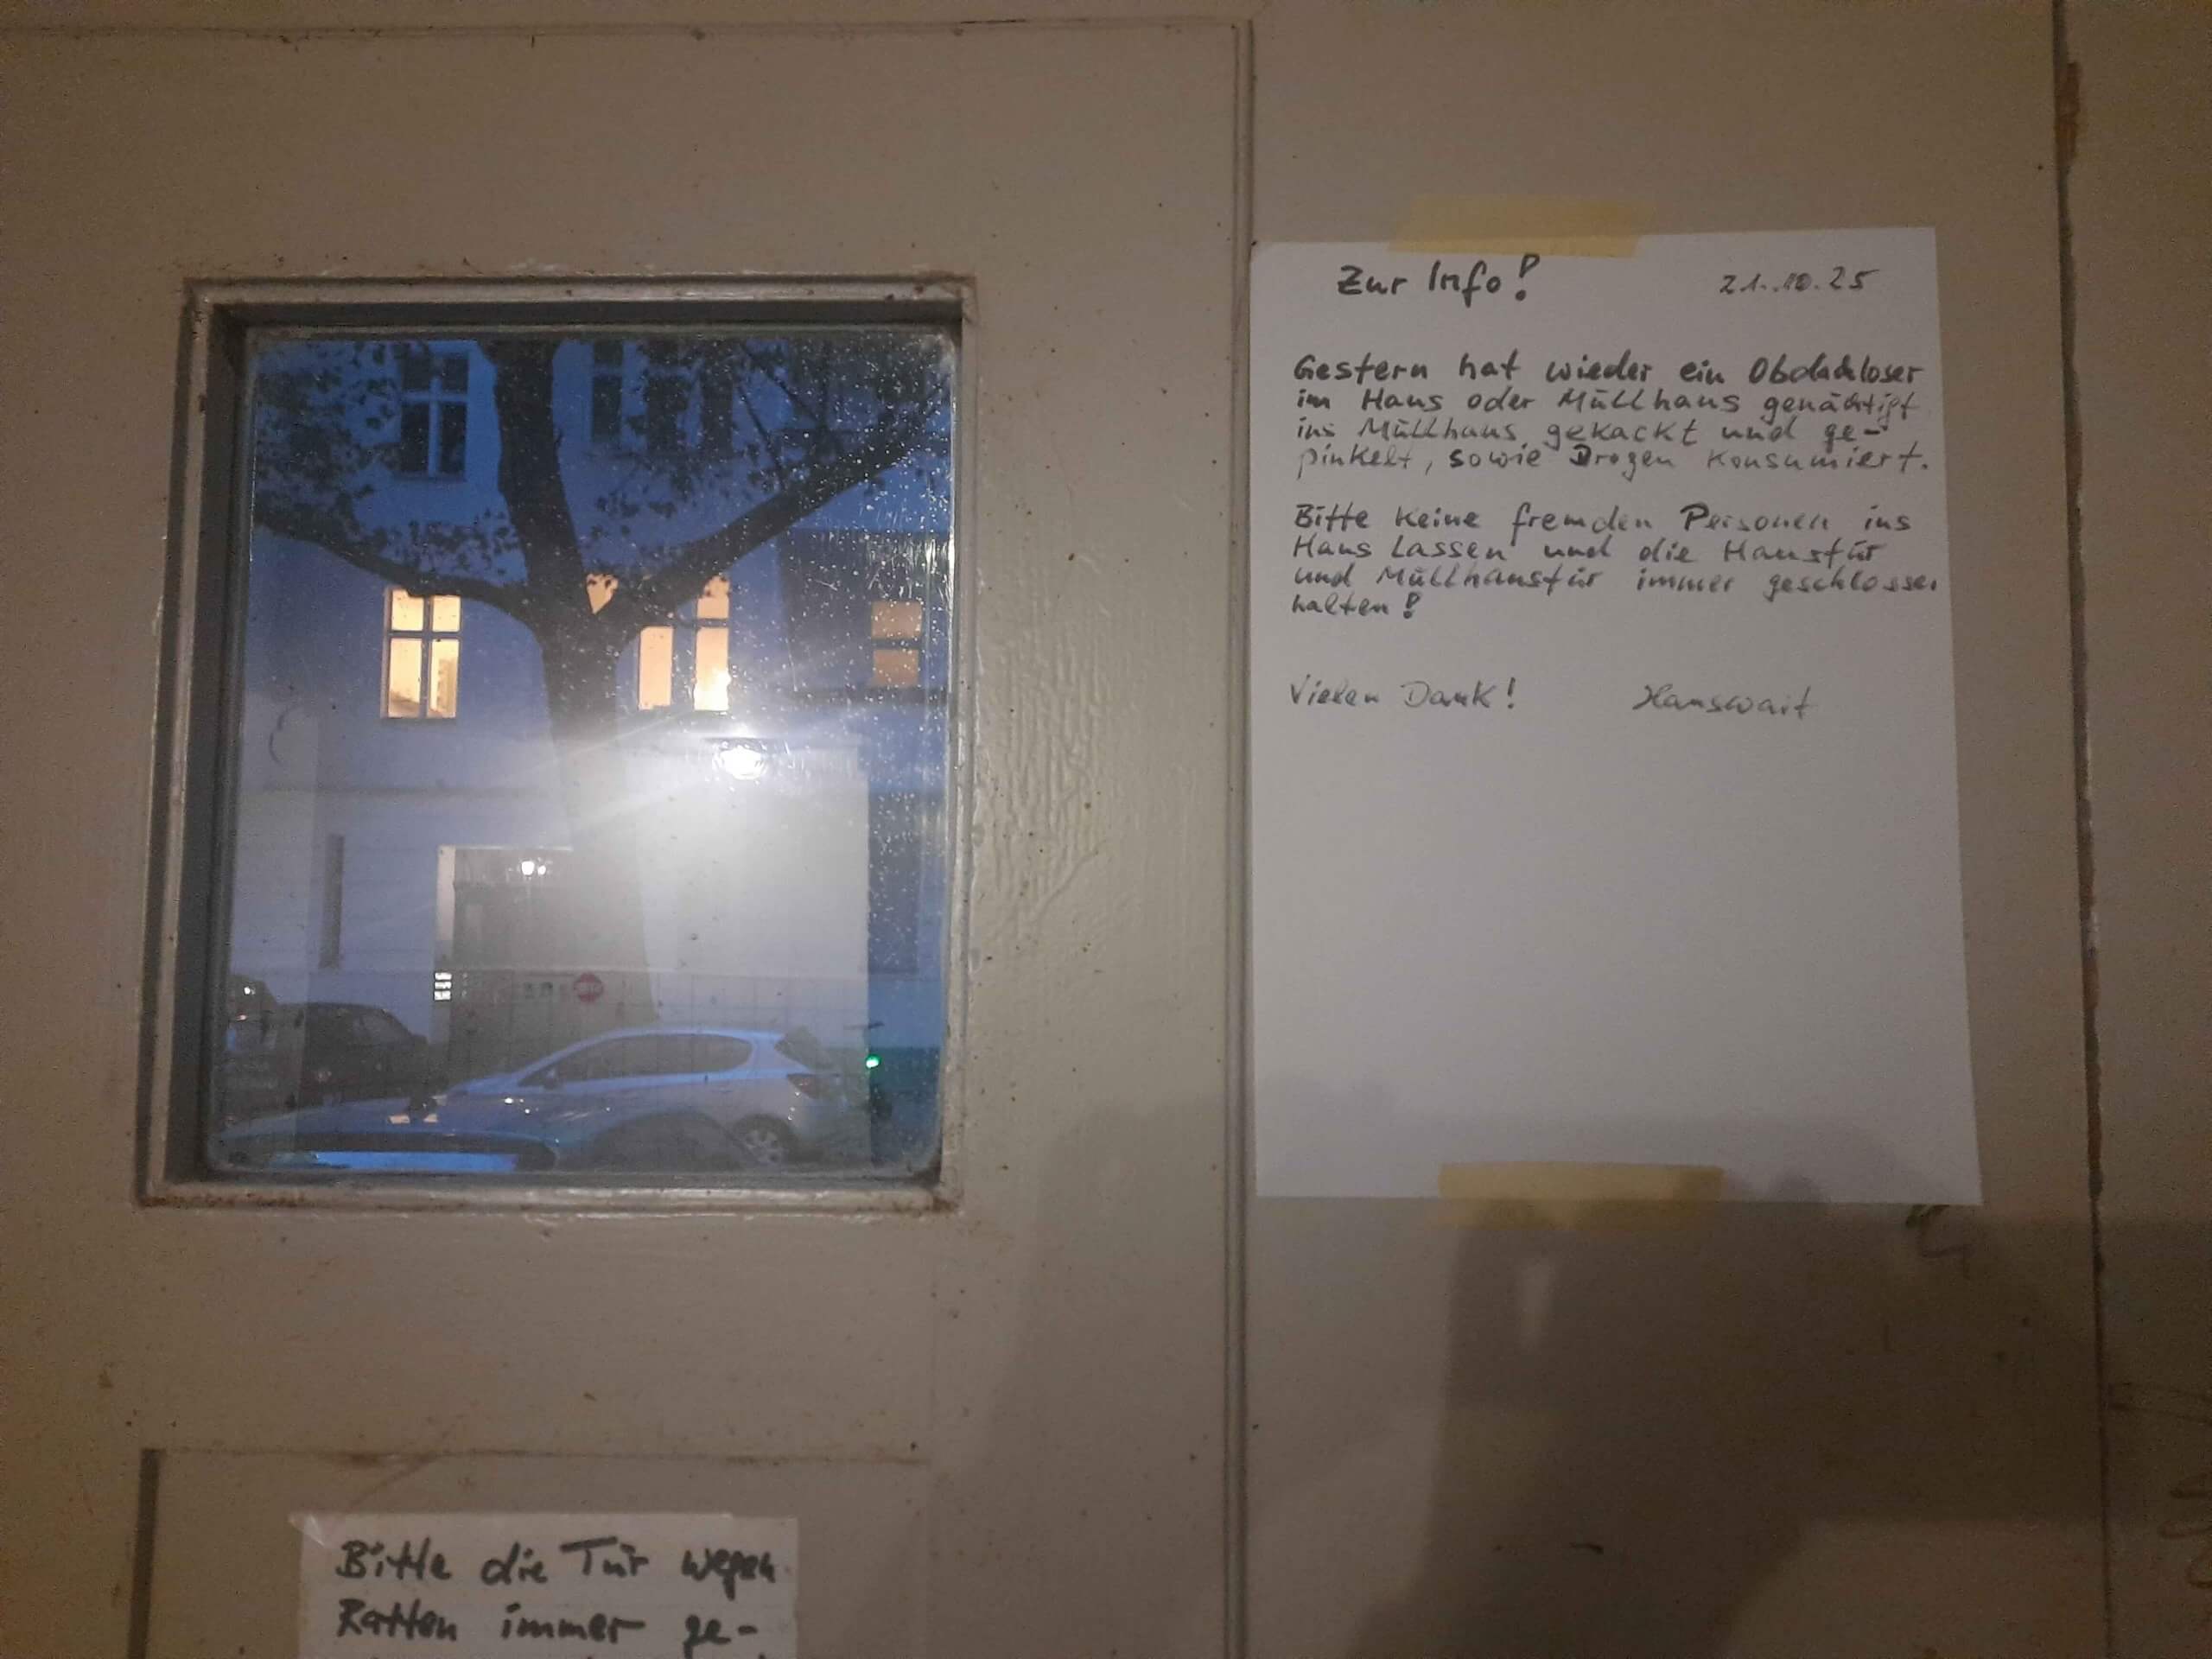 Zur Info!
21.10.25
Gestern hat wieder ein Obdachloser
im Haus oder Müllhaus genächtigt
ins Müllhaus gekackt und ge-
pinkelt, sowie Drogen konsumiert.
Bitte keine fremden Personen ins
Haus lassen und die Haustür
und Müllhaustür immer geschlossen
halten!
Vielen Dank!
Hauswart
Bitte die Tür wegen
Ratten immer ge-